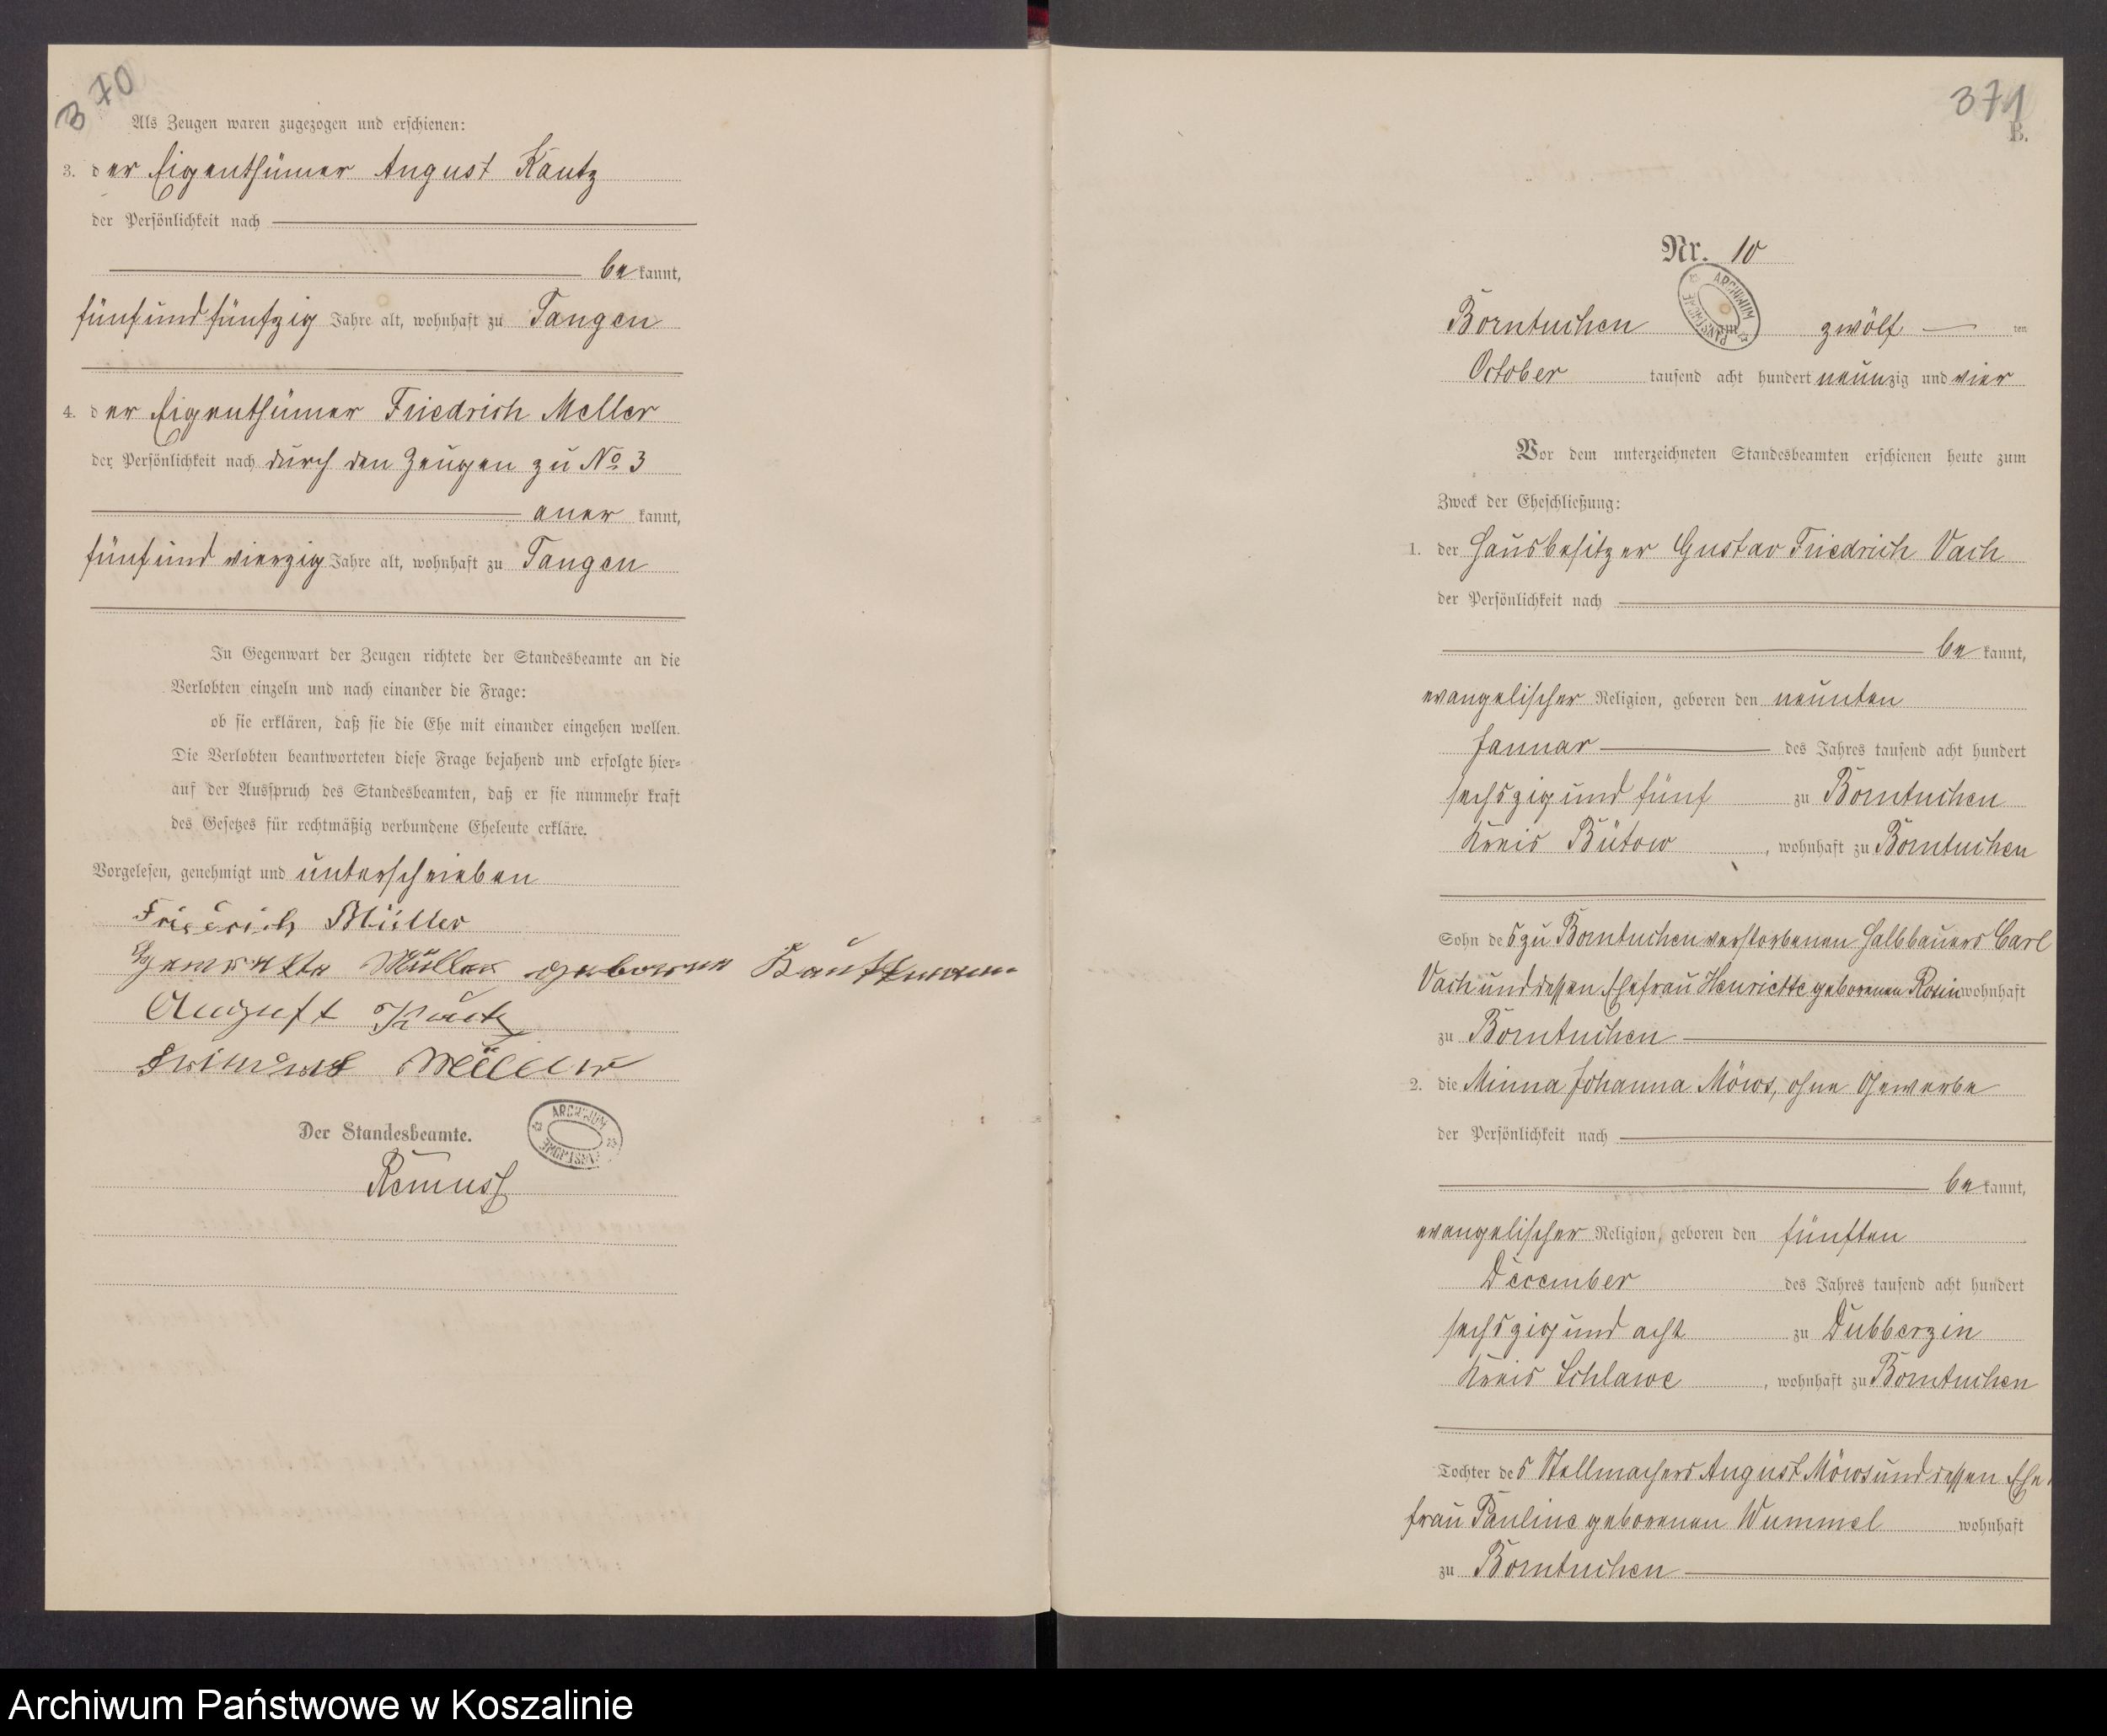 370
Als Zeugen waren zugezogen und erschienen:
3. der Eigenthümer August Kautz
der Persönlichkeit nach
bekannt,
fünf und fünfzig Jahre alt, wohnhaft zu Tangen
4. der Eigenthümer Friedrich Meller
der Persönlichkeit nach durch den Zeugen zu No 3
anerkannt,
fünf und vierzig Jahre alt, wohnhaft zu Tangen
In Gegenwart der Zeugen richtete der Standesbeamte an die
Verlobten einzeln und nach einander die Frage:
ob sie erklären, daß sie die Ehe mit einander eingehen wollen.
Die Verlobten beantworteten diese Frage bejahend und erfolgte hier-
auf der Ausspruch des Standesbeamten, daß er sie nunmehr kraft
des Gesetzes für rechtmäßig verbundene Eheleute erkläre.
Vorgelesen, genehmigt und unterschrieben
Friedrich Müller
Müller geborene
August Kautz
Der Standesbeamte.
ARCHIWUM PAŃSTWOWE
Remuss
371
B.
Nr. 10
ARCHIWUM PAŃSTWOWE
Borntuchen am zwölf ten
October tausend acht hundert neunzig und vier
Vor dem unterzeichneten Standesbeamten erschienen heute zum
Zweck der Eheschließung:
1. der Hausbesitzer Gustav Friedrich Vach
der Persönlichkeit nach
bekannt,
evangelischer Religion, geboren den neunten
Januar des Jahres tausend acht hundert
sechszig und fünf zu Borntuchen
Kreis Bütow, wohnhaft zu Borntuchen
Sohn des zu Borntuchen verstorbenen Halbbauers Carl
Vach und dessen Ehefrau Henriette geborenen Rosin wohnhaft
zu Borntuchen
2. die Minna Johanna Möws, ohne Gewerbe
der Persönlichkeit nach
bekannt,
evangelischer Religion, geboren den fünften
December des Jahres tausend acht hundert
sechszig und acht zu Dubberzin
Kreis Schlawe, wohnhaft zu Borntuchen
Tochter des Stellmachers August Möws und dessen Ehe
frau Pauline geborenen Wummel wohnhaft
zu Borntuchen
Archiwum Państwowe w Koszalinie